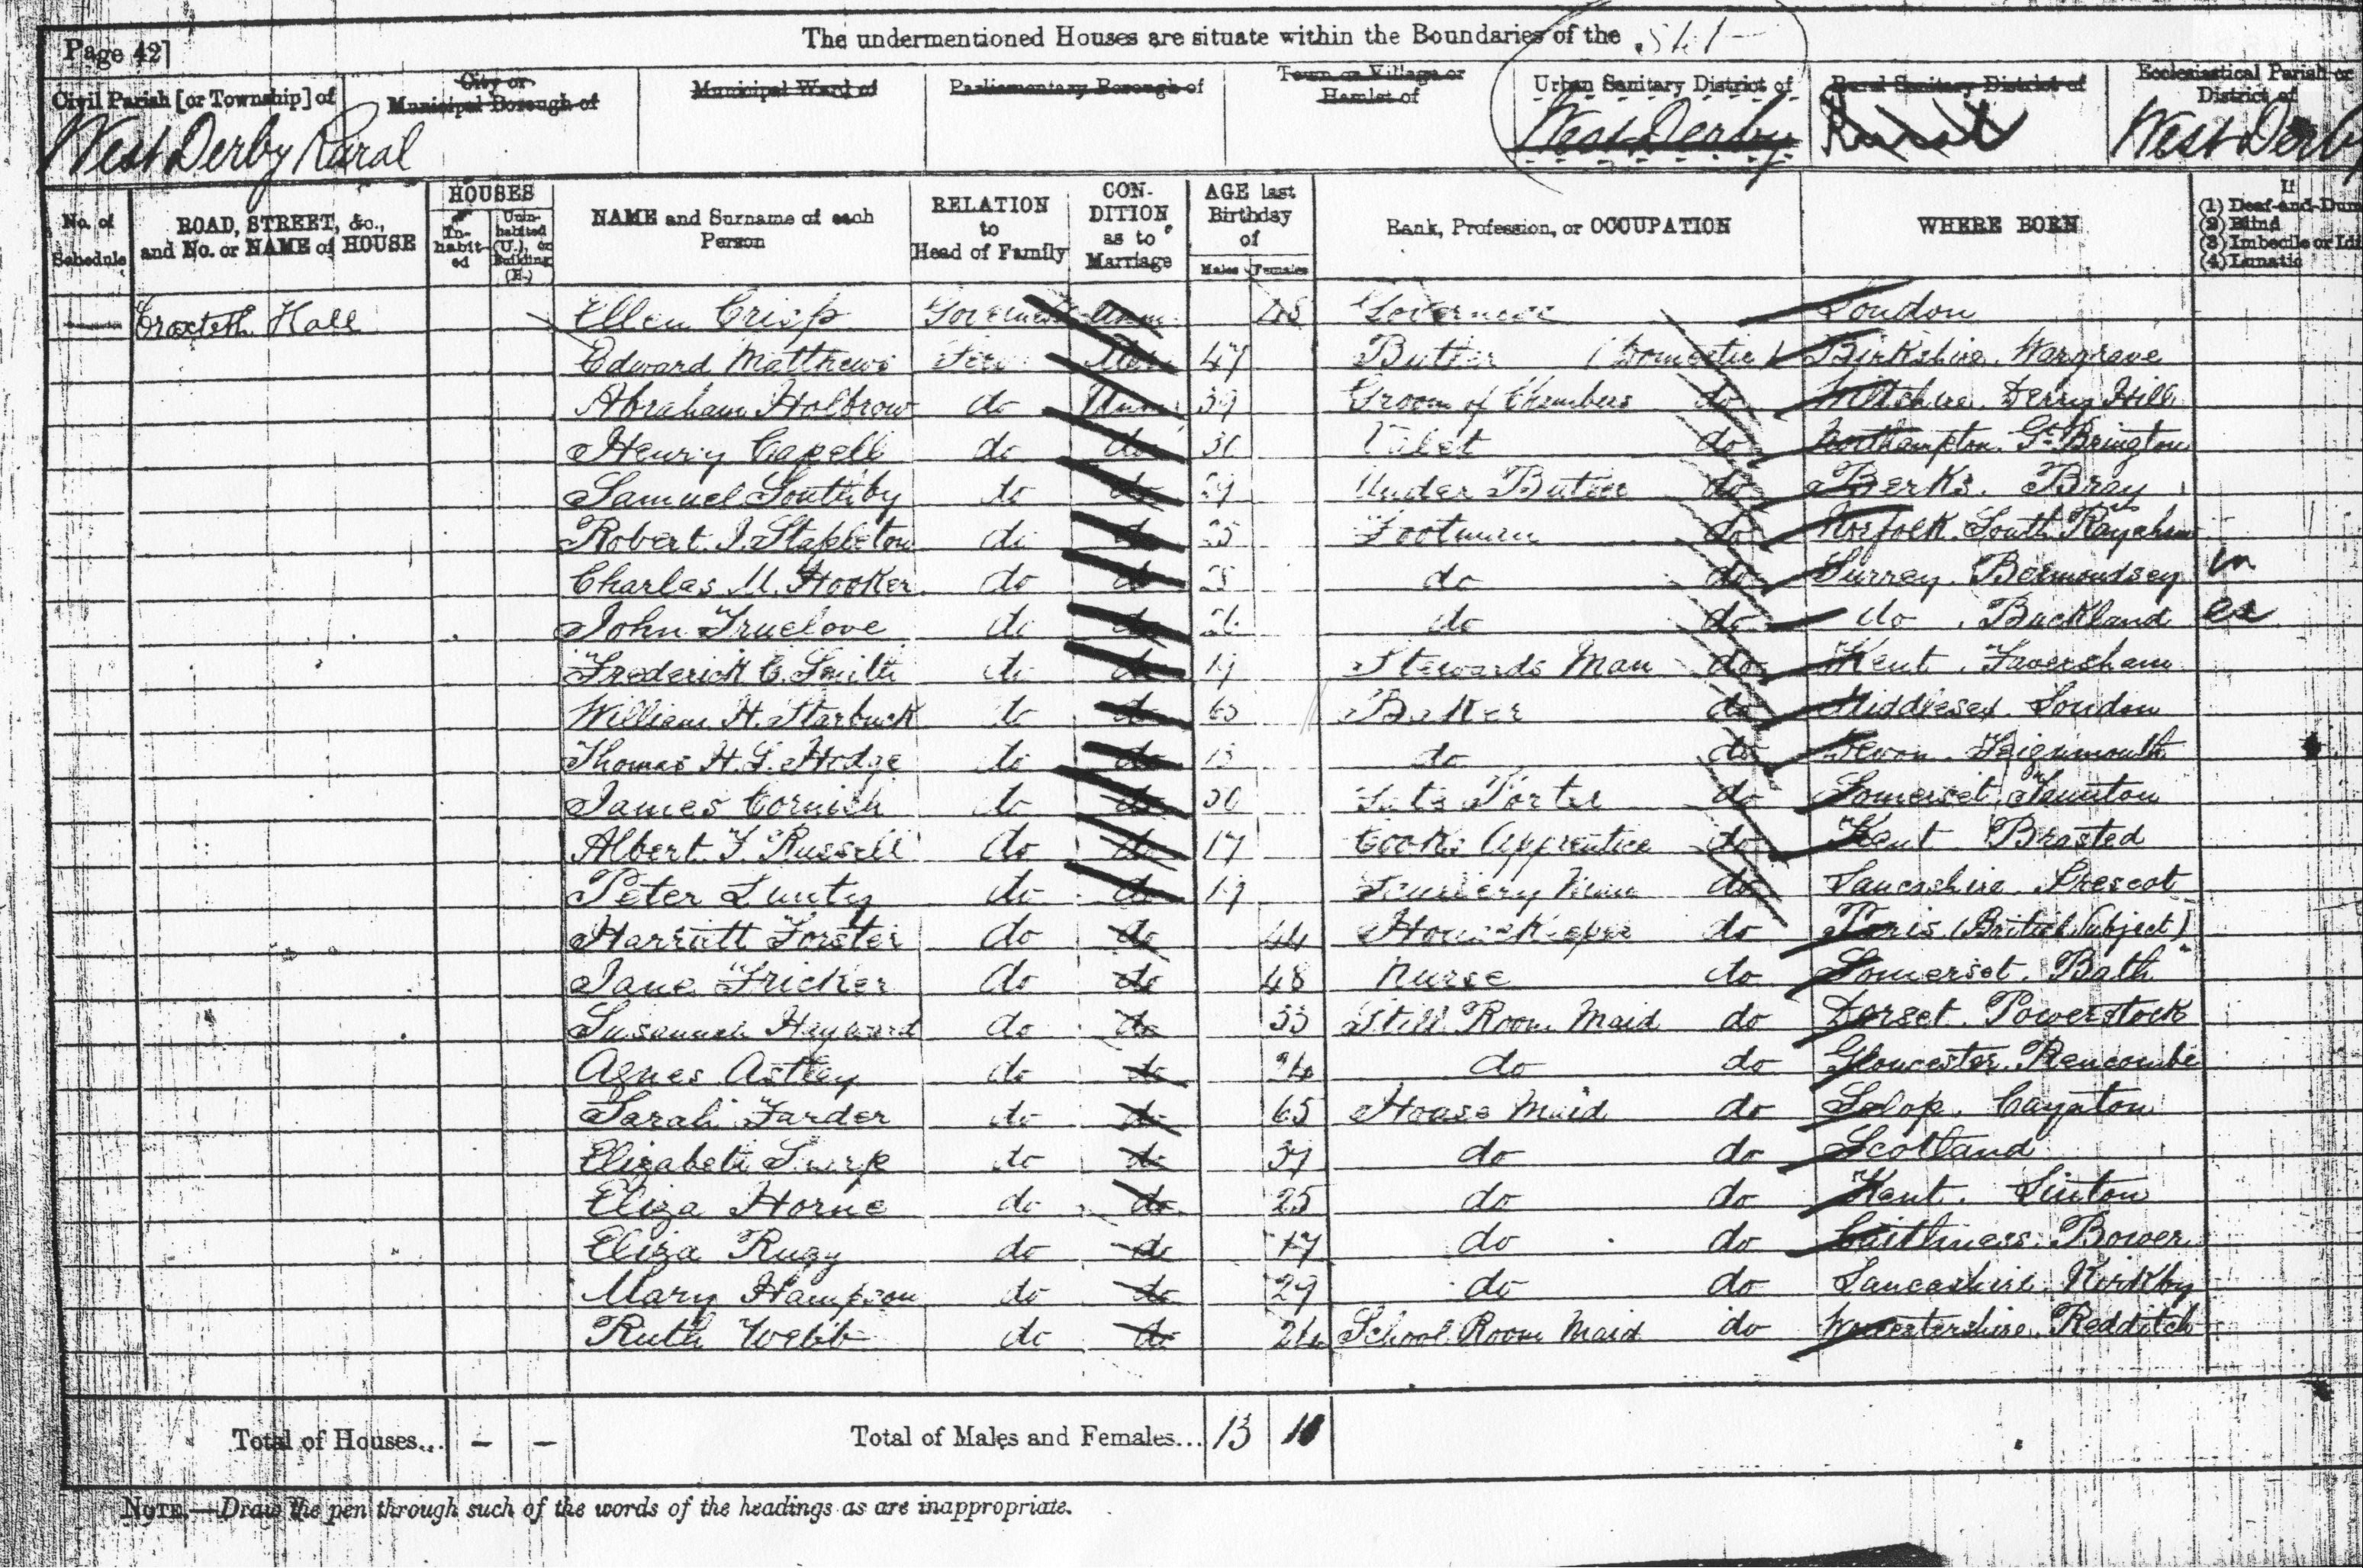 The undermentioned Houses are situate within the Boundaries of the
Page 42]
Civil Parish [or Township] of
City or Municipal Borough of
Municipal Ward of
Parliamentary Borough of
Town or Village or Hamlet of
Urban Sanitary District of
Rural Sanitary District of
Ecclesiastical Parish or District of
West Derby Rural
West Derby
Rural
West Derby
No. of Schedule
ROAD, STREET, &c., and No. or NAME of HOUSE
HOUSES
In-habit-ed
Unin-habited (U.), or Building (B.)
NAME and Surname of each Person
RELATION to Head of Family
CON-DITION as to Marriage
AGE last Birthday of
Males
Females
Rank, Profession, or OCCUPATION
WHERE BORN
If
(1) Deaf-and-Dum
(2) Blind
(3) Imbecile or Idi
(4) Lunatic
Croxteth Hall Ellen Crisp Governess Unm. 48 Governess London
Edward Matthews Serv 47 Butler (Domestic) Birkshire. Wargrave
Abraham Holbrow do Unm 39 Groom of Chambers do Wiltshire. Derry Hill
Henry Capell do do Valet do Northampton. Gt Brington
Samuel Southby do do 29 Under Butler do Berks. Bray
Robert J. Stapleton do do 25 Footman do Norfolk. South Raynham
Charles M. Hooker do do do do Surrey. Bermondsey
John Truelove do do do do do. Buckland
Frederick C. Smith do do 19 Stewards Man do Kent. Faversham
William H. Starbuck do do Baker do Middlesex. London
Thomas H. G. Hodge do do do do Devon. Teignmouth
James Cornish do do Porter do Somerset. Taunton
Albert F. Russell do do 17 Cooks Apprentice do Kent Brasted
Peter Lunty do do 19 Scullery Man do Lancashire. Prescot
Harriett Forster do do 44 Housekeeper do Paris (British Subject)
Jane Fricker do do 48 Nurse do Somerset. Bath
Susannah Hayward do do 33 Still Room Maid do Dorset. Powerstock
Agnes Astley do do 24 do do Gloucester. Rencombe
Sarah Farder do do 65 House Maid do Salop. Caynton
Elizabeth do do do do Scotland
Eliza Horne do do 25 do do Kent. Linton
Eliza Rugy do do 17 do do Caithness. Bower
Mary Hampson do do 29 do do Lancashire. Kirkby
Ruth Webb do do 24 School Room Maid do Worcestershire. Redditch
Total of Houses... – –
Total of Males and Females... 13
NOTE.—Draw the pen through such of the words of the headings as are inappropriate.